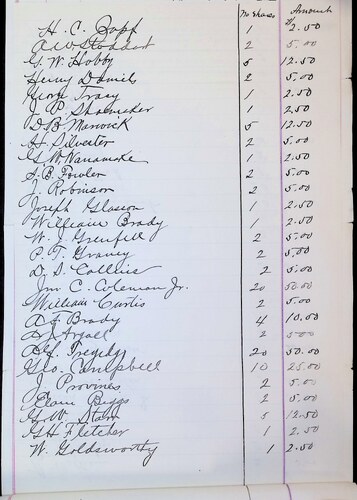 No Shares Amount
H. C. Zapf 1 $2.50
A. W. Stoddart 2 5.00
G. W. Hobby 5 12.50
Henry Daniels 2 5.00
George Tracy 1 2.50
J. P. Shoemaker 1 2.50
D. B. Marwick 5 12.50
H. Silvester 2 5.00
G. W. Wanamake 1 2.50
S. B. Fowler 2 5.00
J. Robinson 2 5.00
Joseph Glasson 1 2.50
William Brady 1 2.50
W. J. Grenfell 2 5.00
P. T. Graney 2 5.00
D. S. Collins 2 5.00
Jno C. Coleman Jr. 20 50.00
William Curtis 2 5.00
A. F. Brady 4 10.00
Argall 2 5.00
Tregidgo 20 50.00
Geo. Campbell 10 25.00
J. Provines 2 5.00
Elam Biggs 2 5.00
G. W. Starr 5 12.50
G H Fletcher 1 2.50
W. Goldsworthy 1 2.50